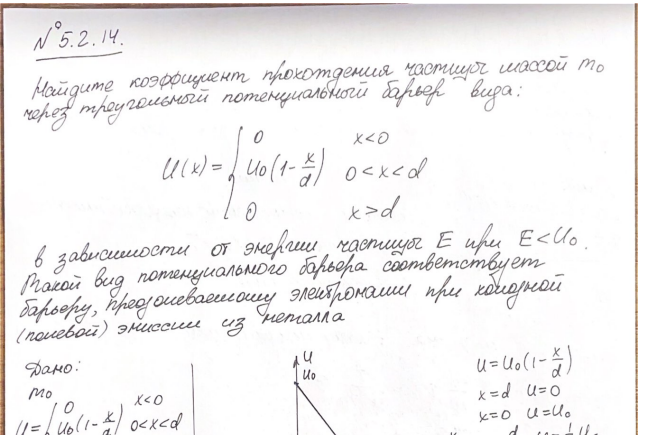 № 5.2.14.
Найдите коэффициент прохождения частицы массой m₀
через треугольный потенциальный барьер вида:
0 x<0
U(x) = { U₀(1 - x/d) 0<x<d
0 x>d
в зависимости от энергии частицы E при E<U₀.
Такой вид потенциального барьера соответствует
барьеру, преодолеваемому электронами при холодной
(полевой) эмиссии из металла
Дано:
m₀
0 x<0
U = { U₀(1 - x/d) 0<x<d
U
U₀
U = U₀(1 - x/d)
x=d U=0
x=0 U=U₀